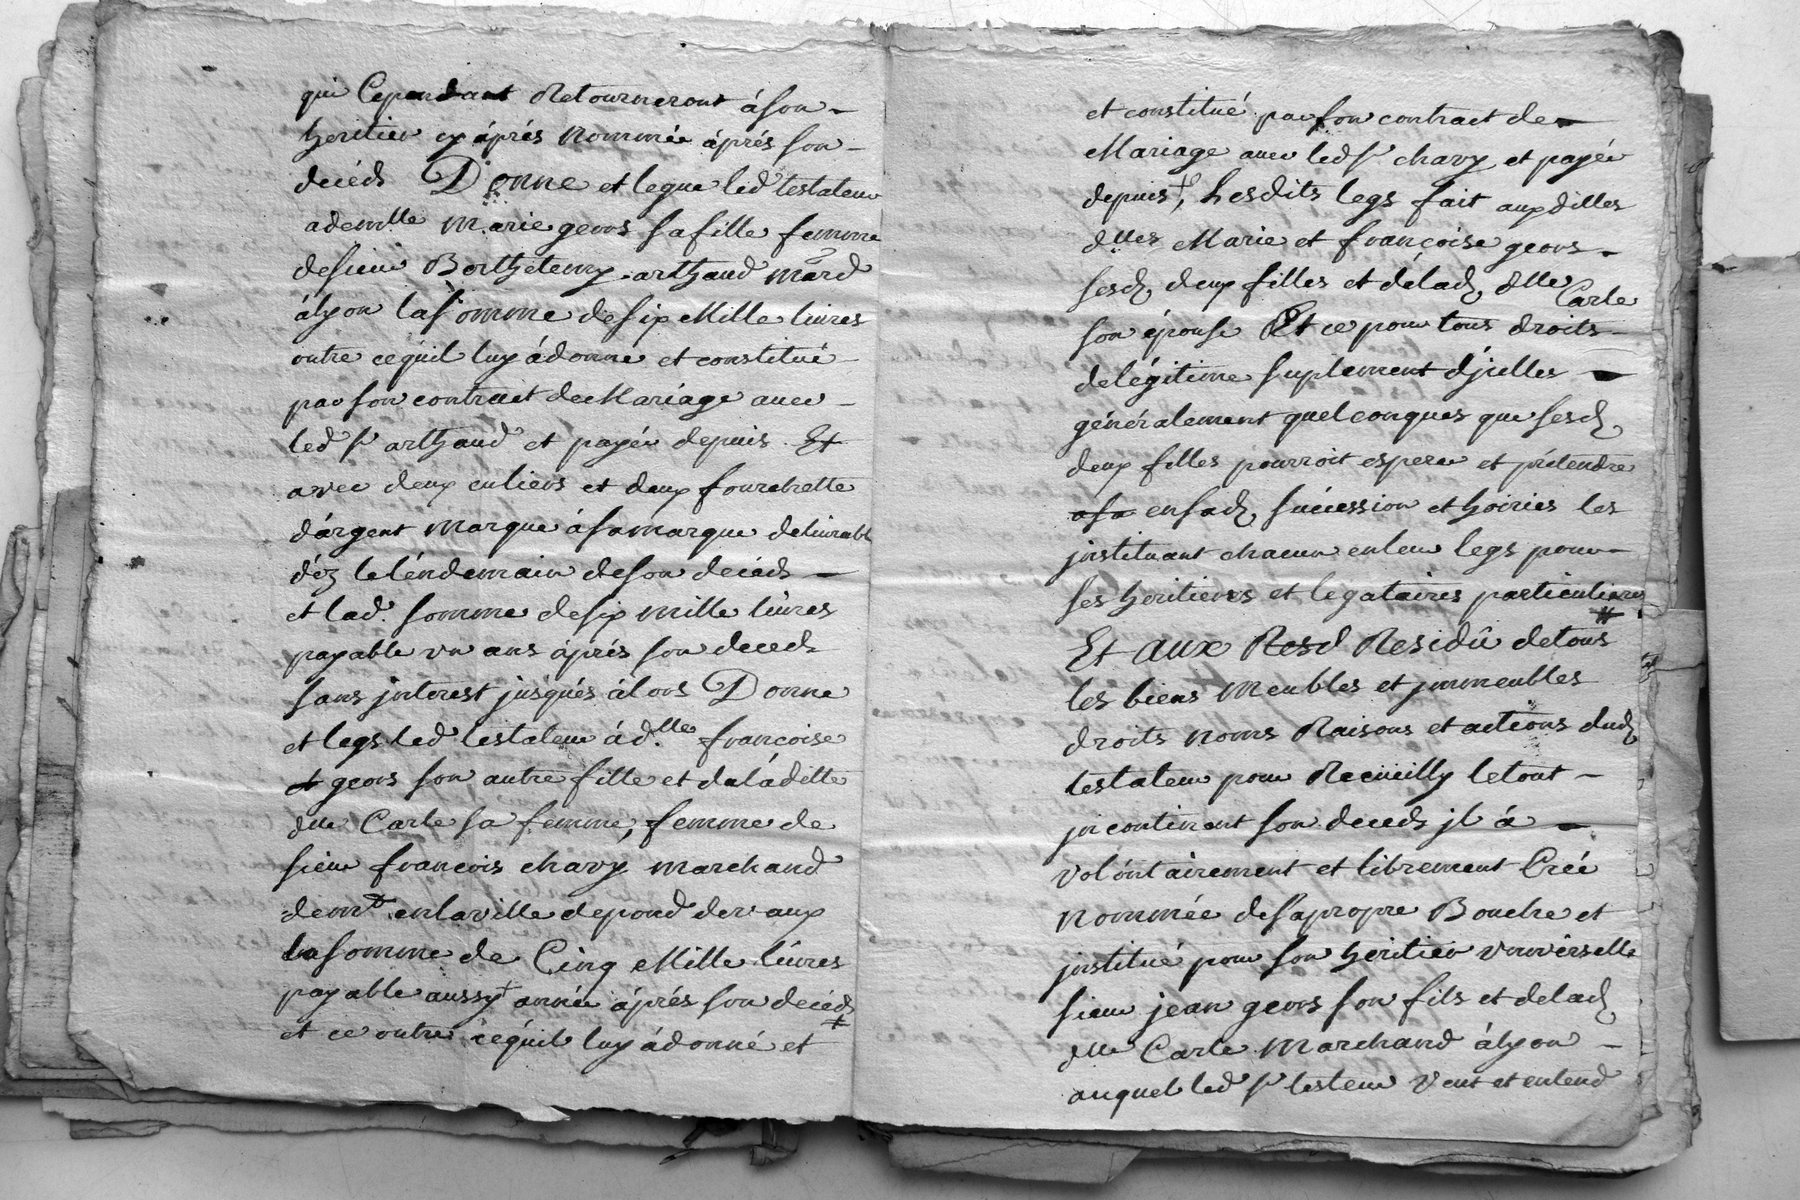 qui Cependant Retourneront á son –
heritier cy áprés nommée áprés son –
decéds Donne et legue led testateur
a demlle marie geors sa fille femme
de sieur Barthelemy arthaud mard
á lyon la somme de six Mille livres
outre cequil luy á donne et constitué
par son contrait de Mariage avec –
led sr arthaud et payée depuis. Et
avec deux culiers et deux fourchette
d'argent marque á sa marque delivrabl
déz le léndemain de son decéds –
et lad. somme de six mille livres
payable un ans áprés son deceds
sans jnterest jusqués álors Donne
et legs led testateur á dlle françoise
geors son autre fille et de la dte
dlle Carle sa femme, femme de
sieur francois chavy marchand
demt en la ville de pond de vaux
la somme de Cinq Mille livres
payable aussy + année áprés son decéds
et ce outre cequil luy á donné et #
et constitué par son contract de –
Mariage avec led sr chavy et payée
depuis, Lesdits legs fait aux dittes
dlles Marie et françoise geors –
sesd, deux filles et de lad, dlle Carle
son épouse Et ce pour tous droits –
de légitime suplement d'jcelles –
généralement quelconques que sesd,
deux filles pourroit esperer et prétendre
a sa en sad, sucéssion et hoiries les
jnstituant chacun en leur legs pour –
ses heritieres et legataires particulieres
#
Et aux Resd Residû de tous
les biens meubles et jmmeubles
droits noms Raisons et actions dud,
testateur pour Recüeilly le tout –
jncontinent son deceds jl á –
volóntairement et librement Créé
nommée de sa propre Bouche et
jnstitué pour son heritier universelle
sieur jean geors son fils et de lad,
dlle Carle Marchand á lyon –
auquel led sr testeur veut et entend